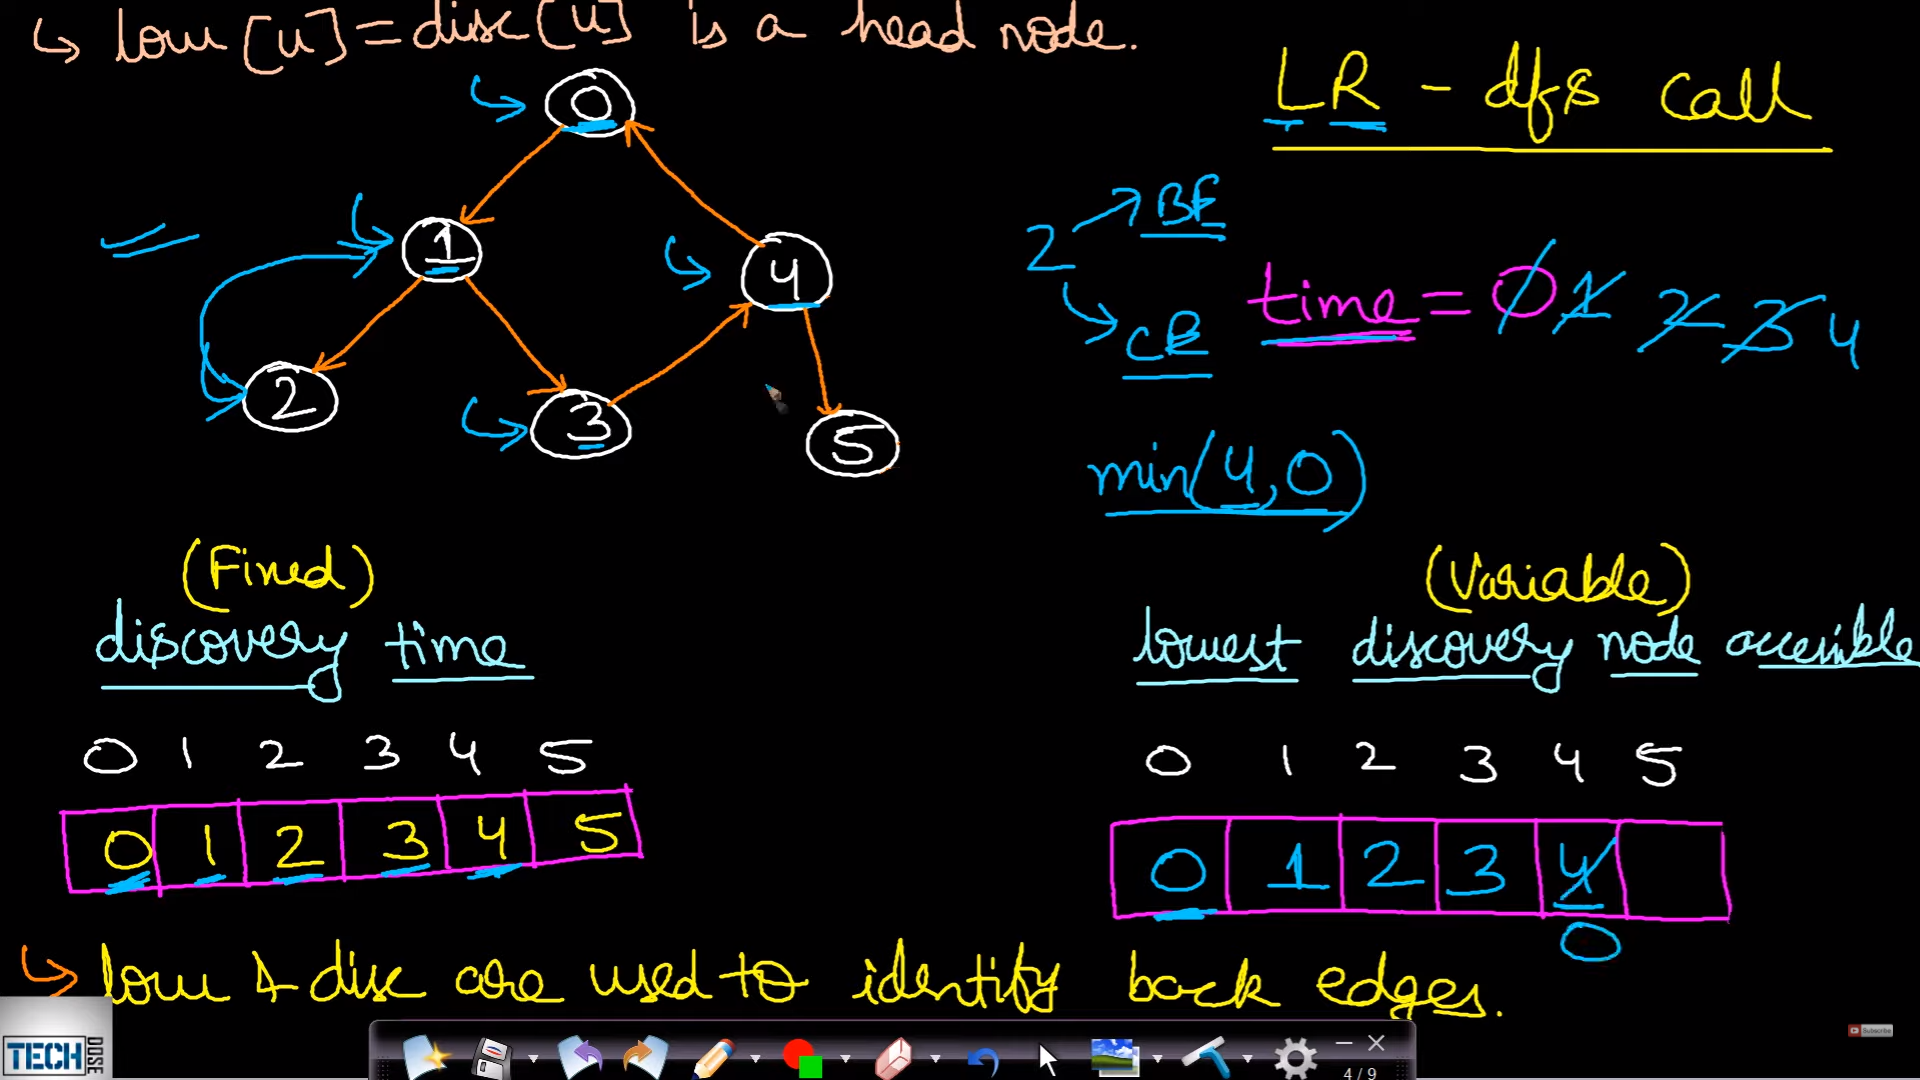 ↳ low [u] = disc [u] is a head node.
LR - dfs call
0
1
4
2
3
5
2
BE
CE
time = 0 1 2 3 4
min(4,0)
(Fixed)
discovery time
0 1 2 3 4 5
0 1 2 3 4 5
(Variable)
lowest discovery node accesible
0 1 2 3 4 5
0 1 2 3 4
0
↳ low & disc are used to identify back edges.
TECH DOSE
Subscribe
4 / 9